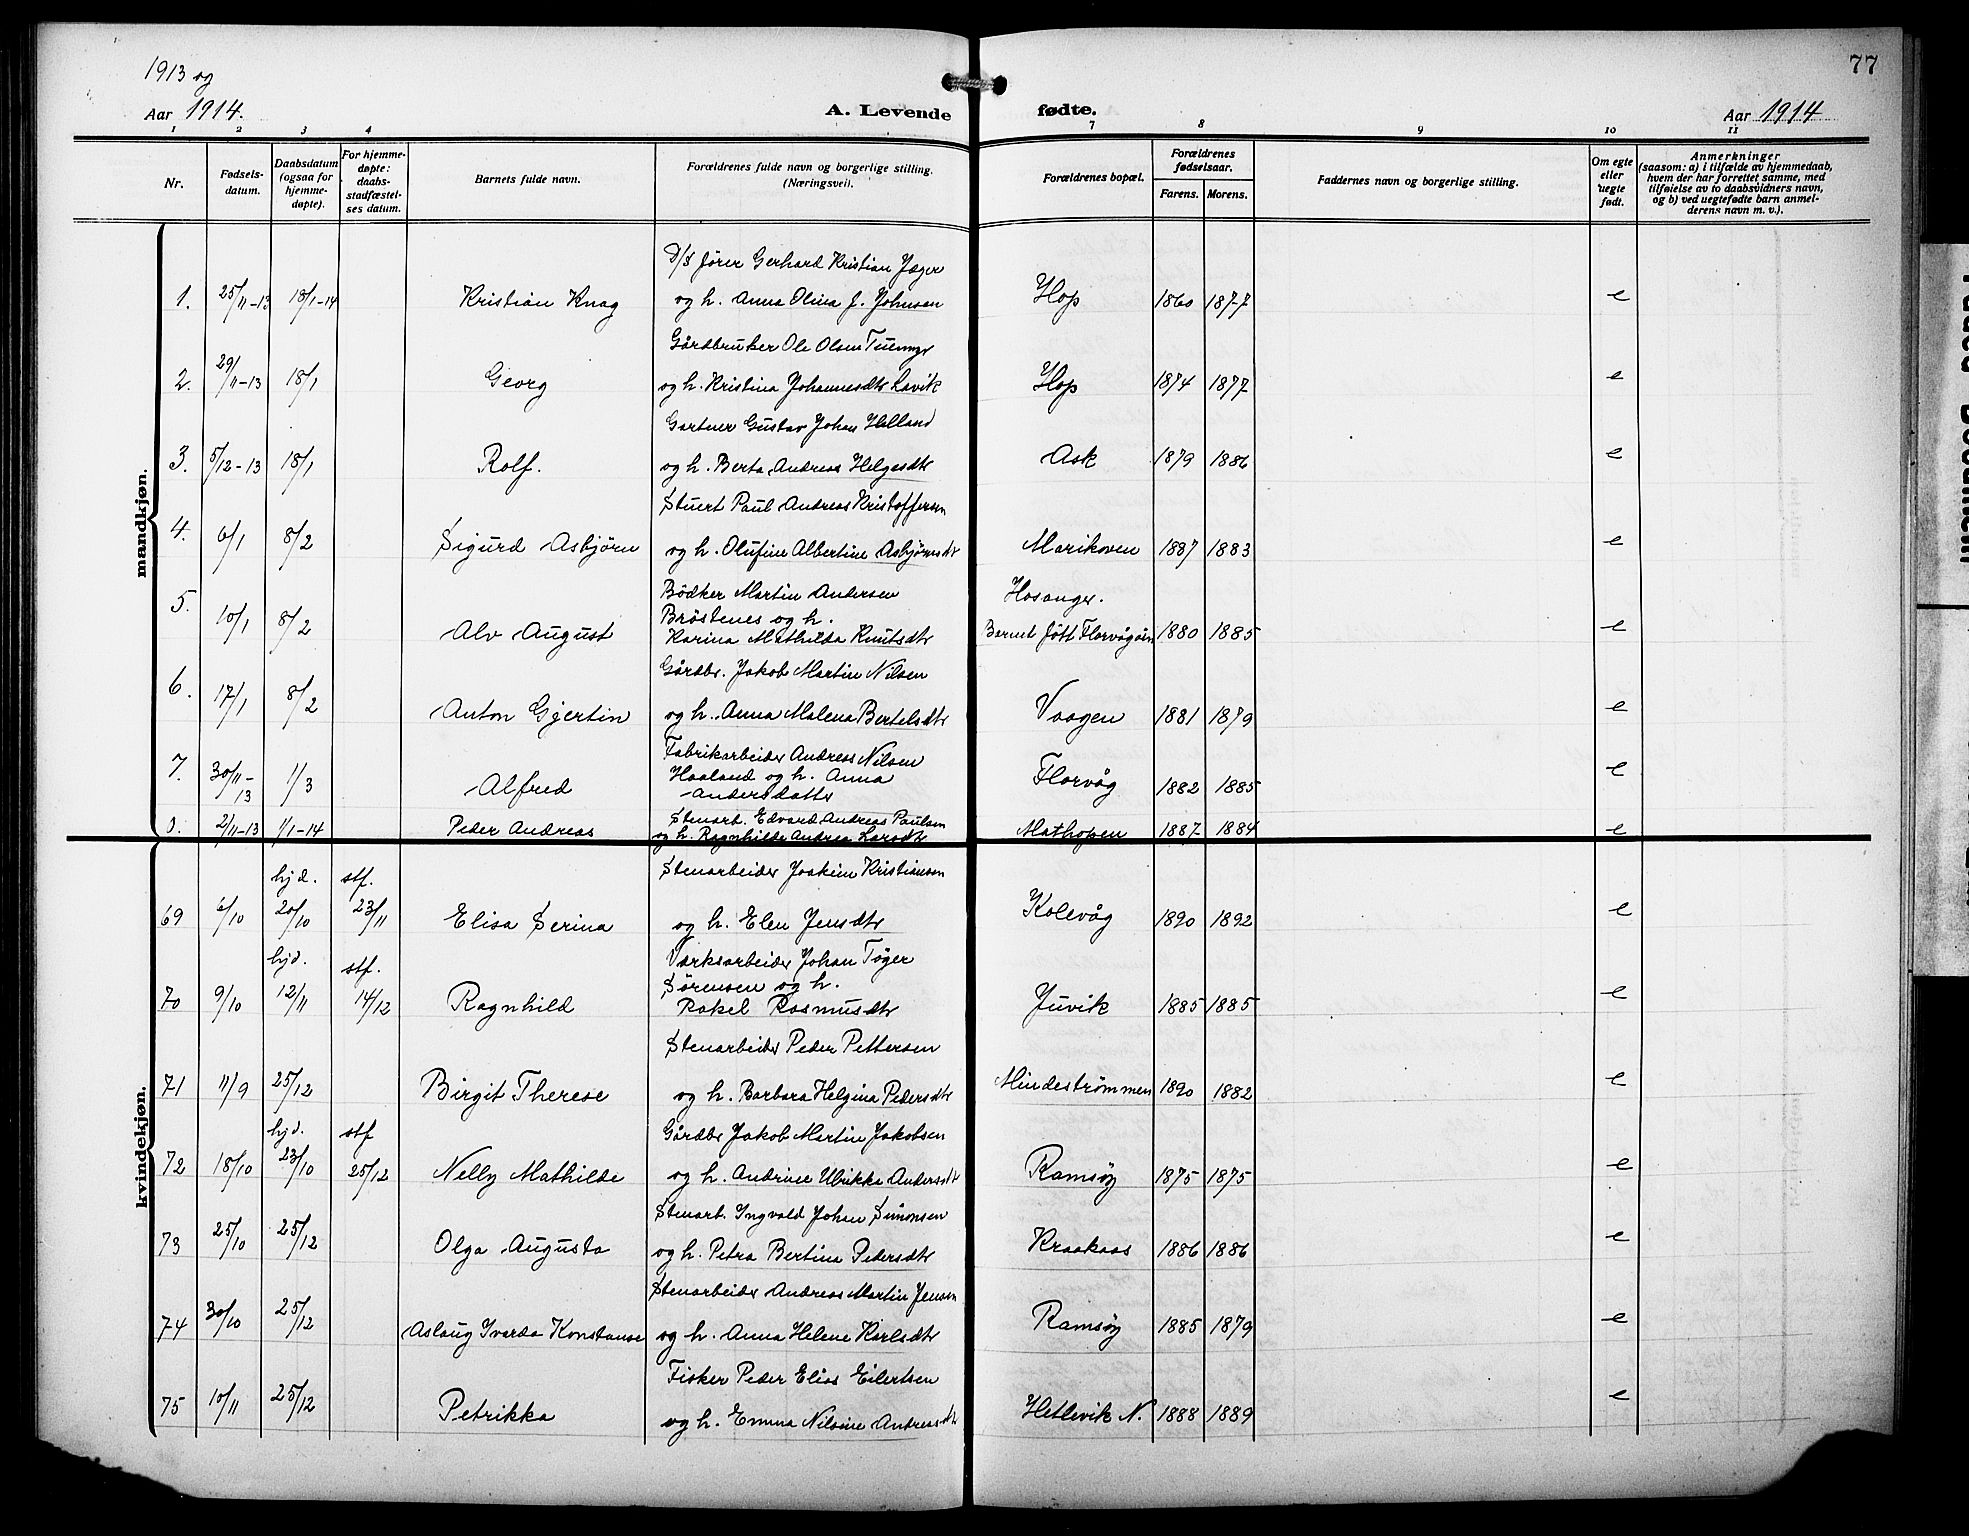 1913 og
Aar 1914.
A. Levende
fødte.
Aar 1914
77
1 2 3 4
7 8 9 10 11
Nr.
Fødsels-
datum.
Daabsdatum
(ogsaa for
hjemme-
døpte).
For hjemme-
døpte:
daabs-
stadfæstel-
ses datum.
Barnets fulde navn.
Forældrenes fulde navn og borgerlige stilling.
(Næringsvei).
Forældrenes bopæl.
Forældrenes
fødselsaar.
Farens. Morens.
Faddernes navn og borgerlige stilling.
Om egte
eller
uegte
født.
Anmerkninger
(saasom: a) i tilfælde av hjemmedaab,
hvem der har forrettet samme, med
tilføielse av to daabsvidners navn,
og b) ved uegtefødte barn anmel-
derens navn m. v.).
mandkjøn.
D/S fører Gerhard Kristian Jæger
1. 25/11-13 18/1-14 Kristian Knag og h. Anna Olina J. Johnsen Hop 1860 1877 e
Gårdbruker Ole Olsen
2. 29/11-13 18/1 Georg og h. Kristina Johannesdtr Lavik Hop 1874 1877 e
Gartner Gustav Johan Helland
3. 5/12-13 18/1 Rolf. og h. Berta Andreas Helgesdtr Ask 1879 1886 e
Stuert Paul Andreas Kristoffersen
4. 6/1 8/2 Sigurd Asbjörn og h. Olufine Albertine Asbjørnsdtr Marikoven 1887 1883 e
Bödker Martin Andersen Hosanger.
5. 10/1 8/2 Bröstenes og h.
Alv August Karina Mathilda Knutsdtr Barnet fött Florvågöen 1880 1885 e
Gårdbr. Jakob Martin Nilsen
6. 17/1 8/2 Anton Gjertin og h. Anna Malena Bertelsdtr Vaagen 1881 1879 e
Fabrikarbeider Andreas Nilsen
7. 30/11-13 1/3 Alfred Haaland og h. Anna Florvåg 1882 1885 e
Andersdatter
Stenarb. Edvard Andreas Paulsen
0. 2/11-13 1/1-14 Peder Andreas og h. Ragnhilde Andrea Larsdtr Mathopen 1887 1884 e
kvindekjøn.
hjd. stf. Stenarbeider Joakim Kristiansen
69 6/10 20/10 23/11 Elisa Serina og h. Elen Jensdtr Kolevåg 1890 1892 e
hjd. stf. Værksarbeider Johan Tøger
Sørensen og h.
70 9/10 12/11 14/12 Ragnhild Rakel Rasmusdtr Juvik 1885 1885 e
Stenarbeider Peder Pettersen
71 11/9 25/12 Birgit Therese og h. Barbara Helgina Pedersdtr Mindeströmmen 1890 1882 e
hjd. stf Gårdbr Jakob Martin Jakobsen
72 18/10 23/10 25/12 Nelly Mathilde og h. Andrine Ulrikka Andersdtr Ramsöy 1875 1875 e
Stenarb. Ingvald Johan Simonsen
73 25/10 25/12 Olga Augusta og h. Petra Bertina Pedersdtr Kraakaas 1886 1886 e
Stenarbeider Andreas Martin Jensen
74 30/10 25/12 Aslaug Ivarda Konstanse og h. Anna Helene Karlsdtr Ramsöy 1885 1879 e
Fisker Peder Elias Eilertsen
75 10/11 25/12 Petrikka og h. Emma Nilsine Andreasdtr Hetlevik N. 1888 1889 e